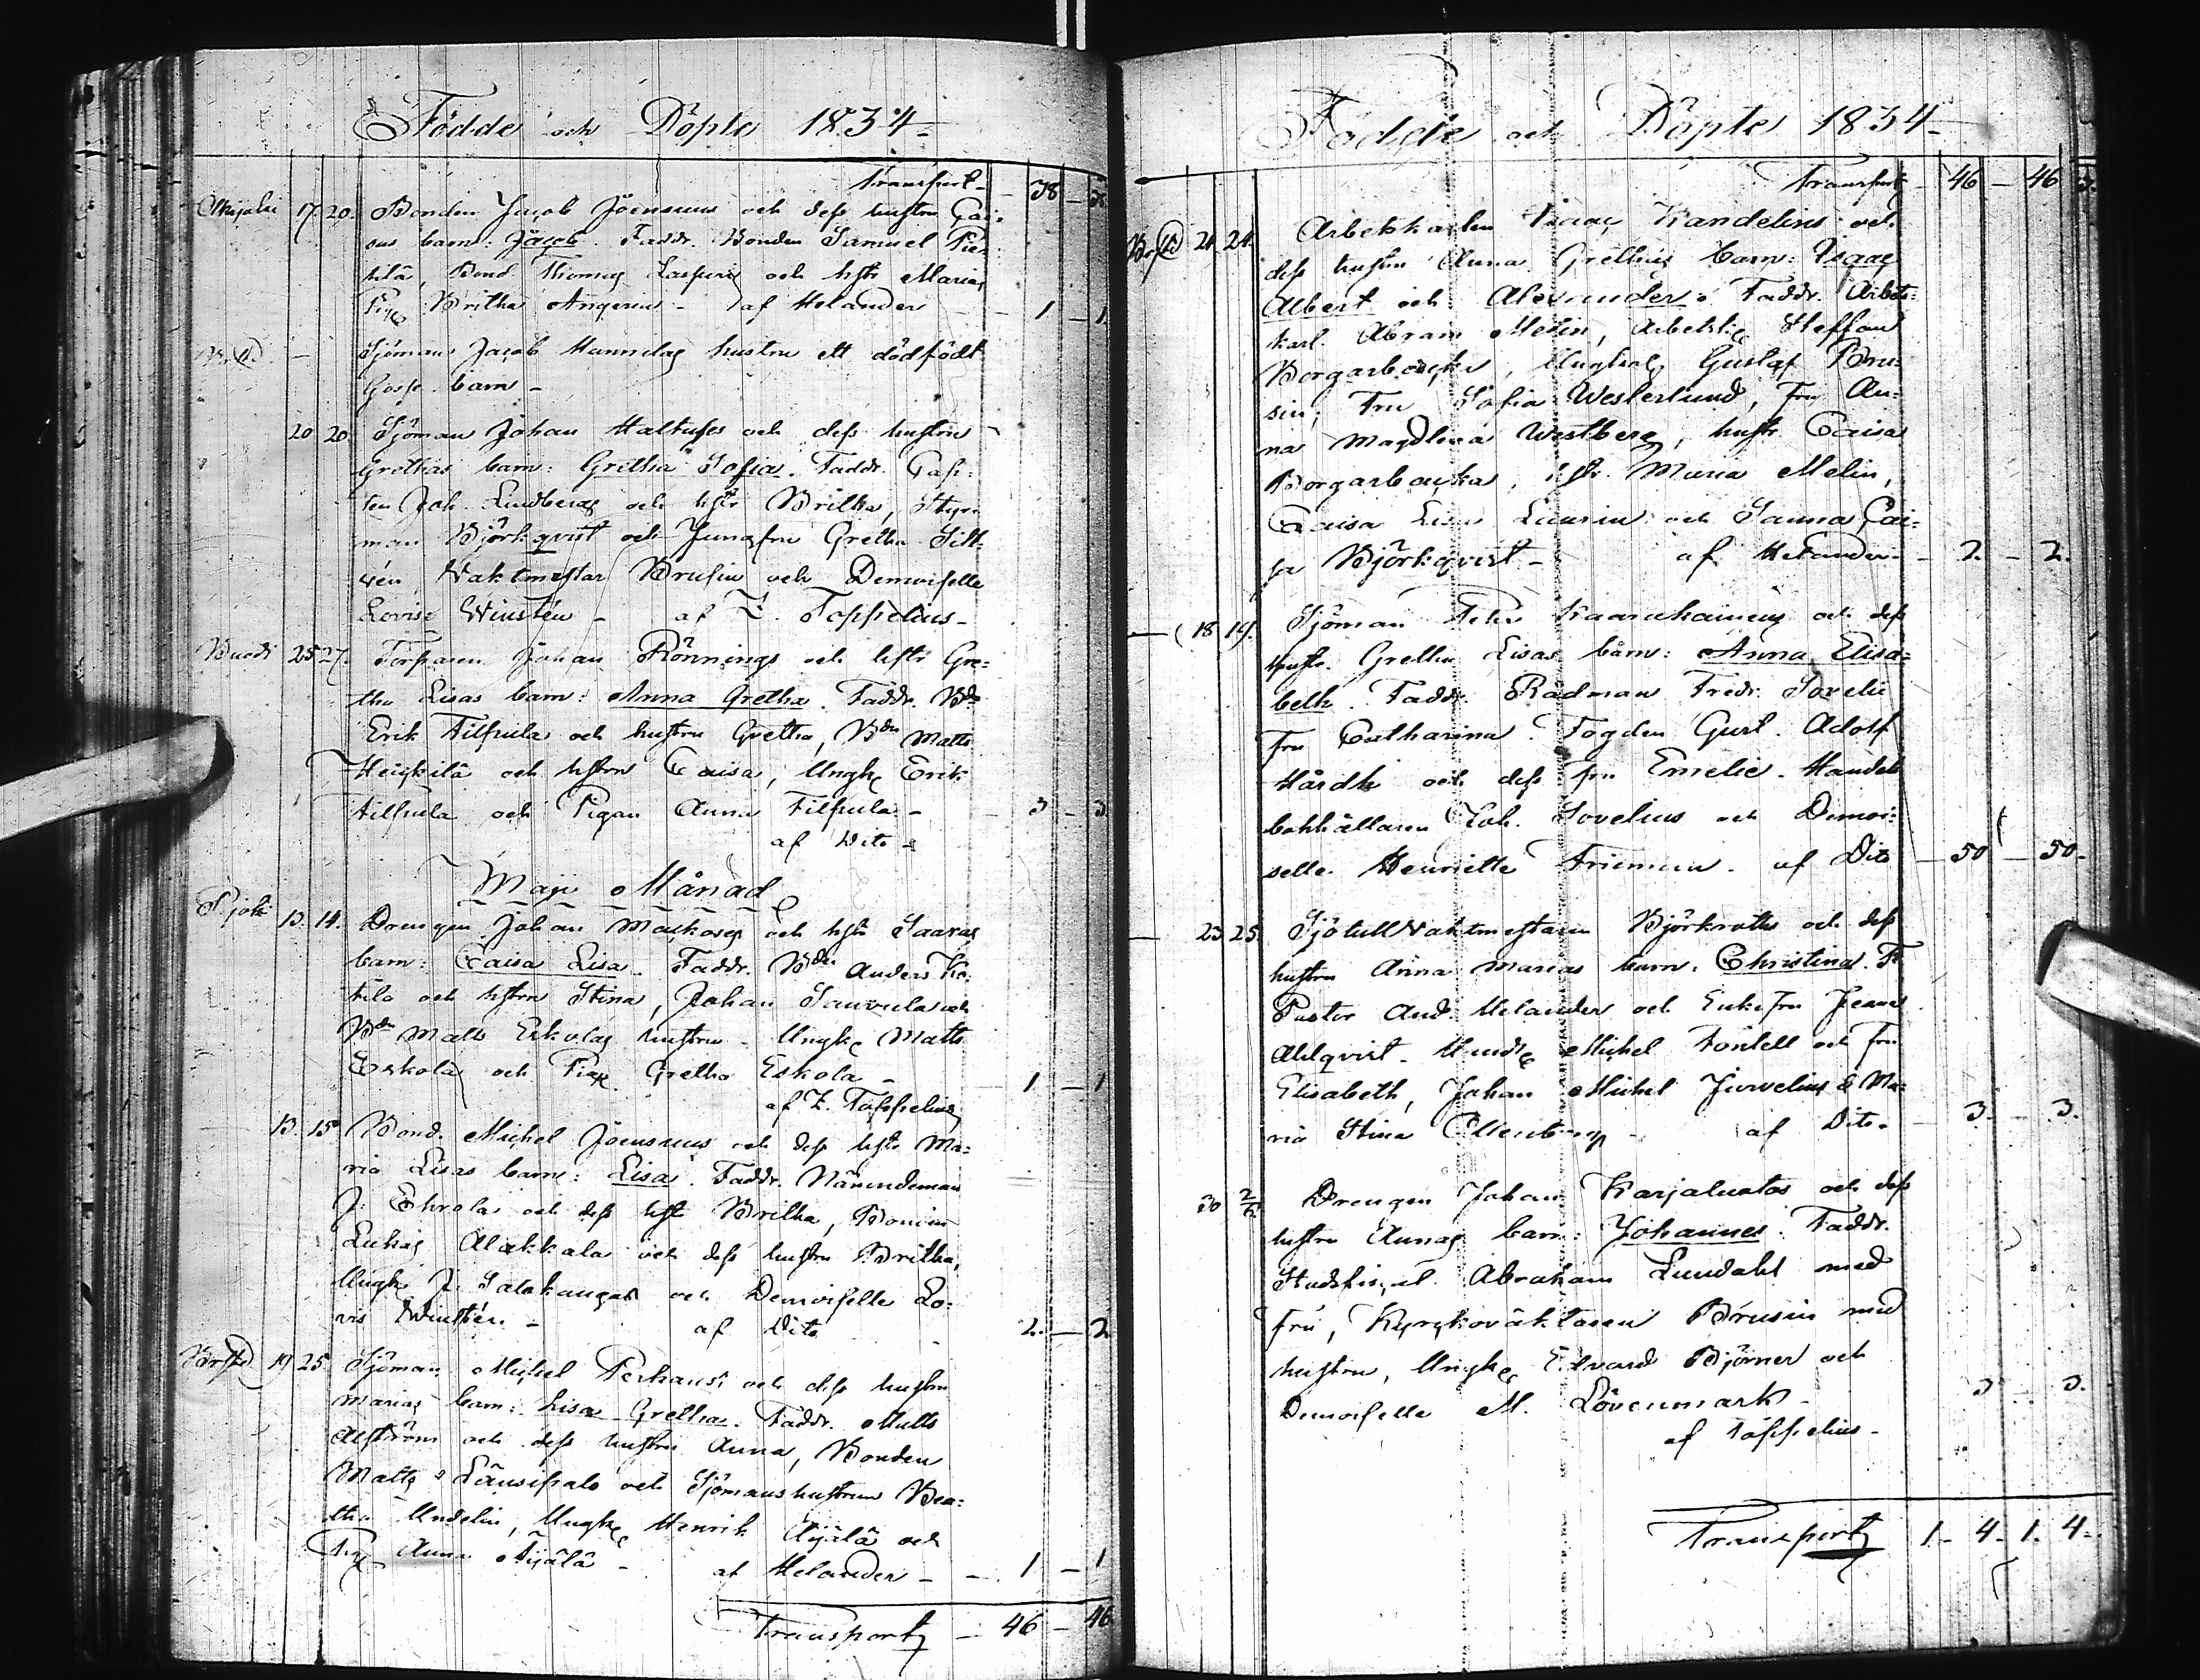 Födde och Döpte 1834
Transport 38
17. 20. Bonden Jacob Jöensuus och dess hustru Cai-
sas barn: Jacob. Faddr. Bonden Samuel Pie-
tilä, Bond. Thomas och hstr Maria,
Pig. Britha Angerius - af Helander 1 - 1.
Sjöman Jacob hustru ett dödfödt
Gosse barn -
20 20. Sjöman Johan och dess hustru
Grethas barn: Gretha Sofia. Faddr. Cap-
ten Joh. Lindberg och hstr Britha, Styr-
man Björkqvist och Jungfru Gretha
Waktmestar Brusin och Demoiselle
Lovise Winstén - af Z. Toppelius -
25 27. Torparen Johan Rönnings och hstr Gre-
tha Lisas barn: Anna Gretha. Faddr. Bdn
Erik Filpula och hustru Gretha, Bdn Matts
Heickilä och hstru Caisa, Ungk. Erik
Filpula och Pigan Anna Filpula - 3 - 3
af Dito
Maji Månad
P.joki 13. 14. Drengen Johan och hstr Saaras
barn: Caisa Lisa. Faddr. Bdn Anders
och hstru Stina, Johan och
Bdn Matts Eskolas hustru - Ungk. Matts
Eskola och Pig. Gretha Eskola - 1 - 1
af Z. Toppelius
13. 15 Bond. Michel Jöensuus och dess hstr Ma-
ria Lisas barn: Lisa. Faddr. Nämndeman
J. Ehrola och dess hst. Britha, Bonden
Lukas Alakkala och dess hustru Britha,
Ungk. J. Satokangas och Demoiselle Lo-
vis Winstén - af Dito 2. - 2
19 25. Sjöman Michel och dess hustru
Marias barn: Lisa Gretha. Faddr. Matts
Alström och dess hustru Anna, Bonden
Matts Länsipalo och Sjömanshustrun Bea-
tha Undelin, Ungk. Henrik Äijälä och
Pig. Anna Äijälä - af Helander - 1 - 1
Transport - 46 - 46
Födde och Döpte 1834
Transport 46 - 46
21. 24. Arbetskarlen Isaac Kandelins och
dess hustru Anna Grethas barn: Isaac
Albert och Alexander. Faddr. Arbets-
karl. Abram Melin, Arbetsk. Steffan
Borgarbacka, Ungkarl. Gustaf Bru-
sin, Fru Sofia Westerlund, Fru An-
na Magdlena Westberg, hustr. Caisa
Borgarbacka, hstr. Maria Melin,
Caisa Lisa Laurin och Sanna Cai-
sa Björkqvist - af Helander - 2. - 2.
18 19. Sjöman Petter och dess
hustr. Gretha Lisas barn: Anna Elisa-
beth. Faddr. Rådman Fredr. Sovelii
fru Catharina. Fogden Gust. Adolf
Hårdh och dess fru Emelie. Handels
bokhållaren Joh. Sovelius och Demoi-
selle Henriette Frieman. af Dito - 50 - 50.
23 25 Sjötullwaktmestaren Björkroths och dess
hustru Anna Marias barn: Christina. F.
Pastor And. Helander och Enkefru Jeana
Ahlqvist. Handl. Michel Fontell och fru
Elisabeth, Johan Michel Jurvelius & Ma-
ria Stina - af Dito. 3. - 3.
30 2/6. Drengen Johan Karjaluotos och dess
hustru Annas barn: Johannes. Faddr.
Stadsfiscal Abraham Lundahl med
fru, Kyrkoväktaren Brusin med
hustru, Ungk. Edvard Björner och
Demoiselle M. Lövenmark - 3 - 3.
af Toppelius -
Transport 1 - 4 - 1. 4 -